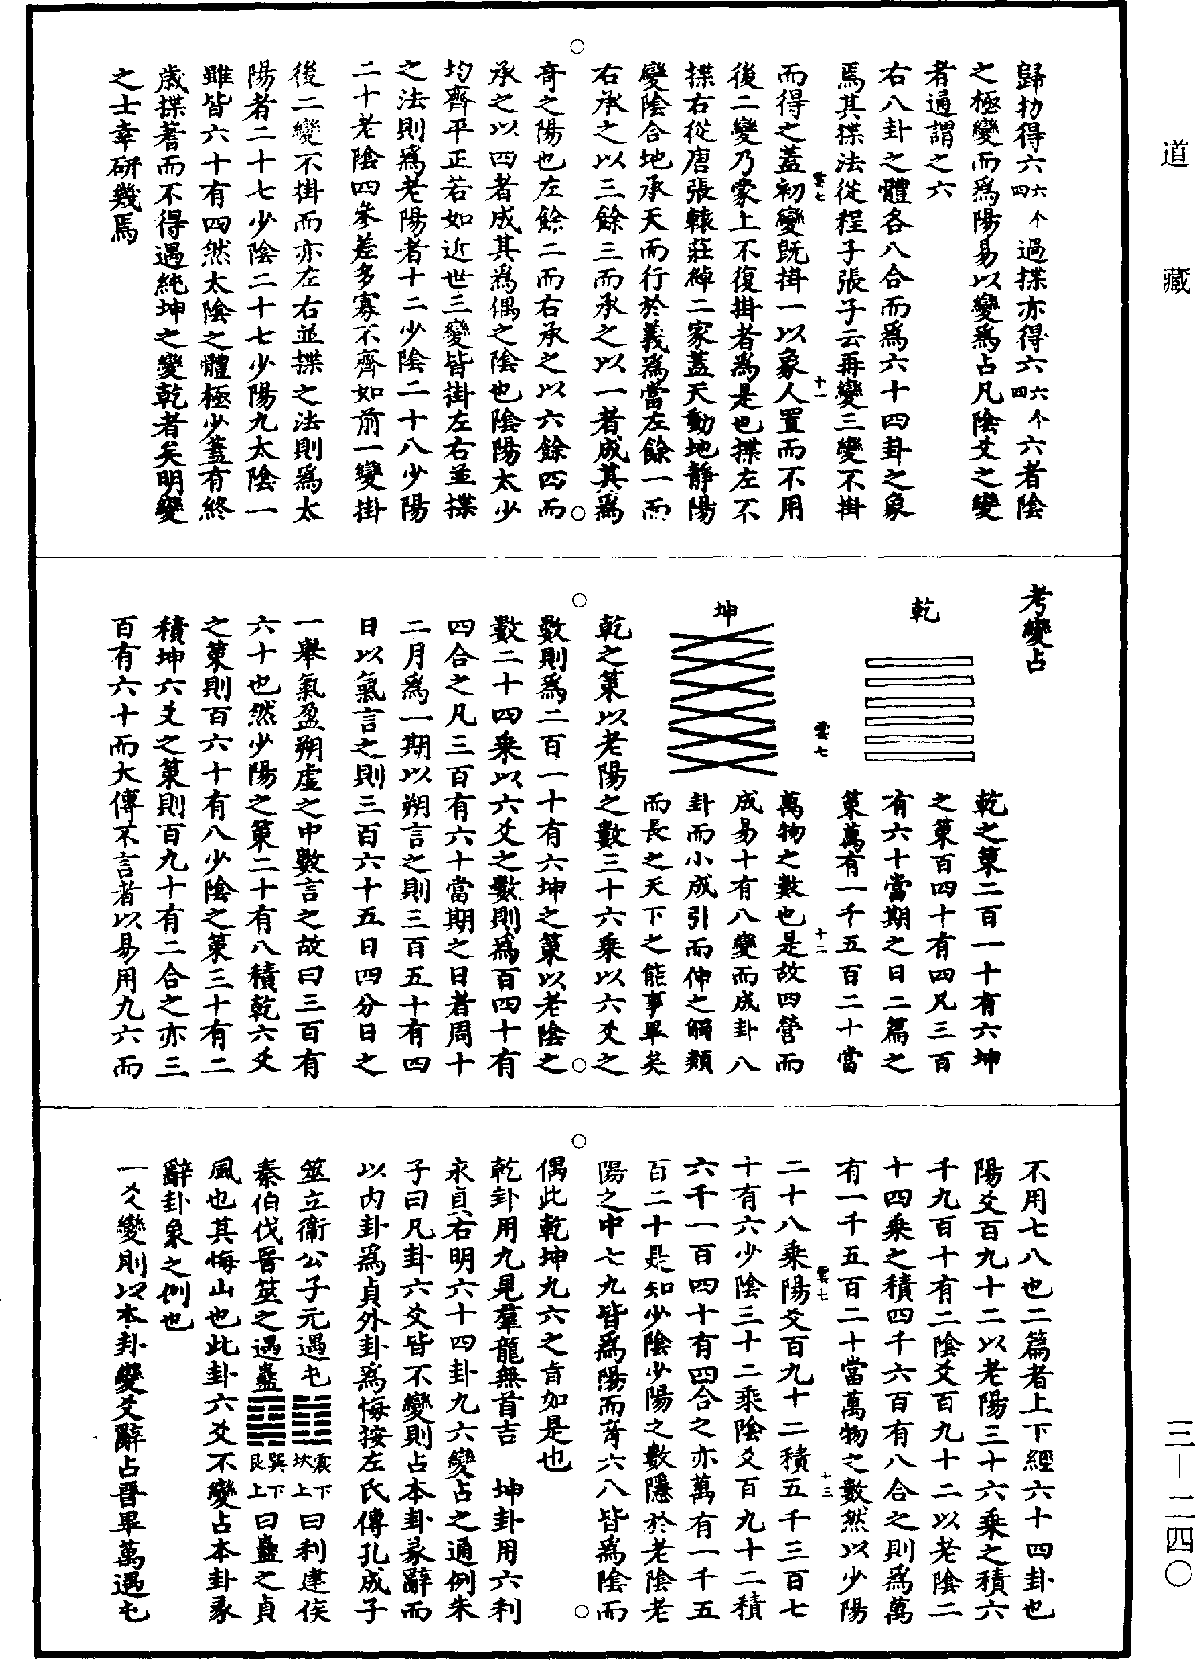 道藏
歸扐得六六个四過揲亦得六六个四六者陰
之極變而爲陽易以變爲占凡陰爻之變
者通謂之六
右八卦之體各八合而爲六十四卦之象
焉其揲法從程子張子云再變三變不掛
雲七 十一
而得之蓋初變既掛一以象人置而不用
後二變乃蒙上不復掛者爲是也揲左不
揲右從唐張轅莊綽二家蓋天動地靜陽
變陰合地承天而行於義爲當左餘一而
右承之以三餘三而承之以一者成其爲
奇之陽也左餘二而右承之以六餘四而
承之以四者成其爲偶之陰也陰陽太少
均齊平正若如近世三變皆掛左右並揲
之法則爲老陽者十二少陰二十八少陽
二十老陰四參差多寡不齊如前一變掛
後二變不掛而亦左右並揲之法則爲太
陽者二十七少陰二十七少陽九太陰一
雖皆六十有四然太陰之體極少蓋有終
歲揲蓍而不得遇純坤之變乾者矣明變
之士幸研幾焉
考變占
乾
乾之策二百一十有六坤
之策百四十有四凡三百
有六十當期之日二篇之
策萬有一千五百二十當
雲七 十二
坤
萬物之數也是故四營而
成易十有八變而成卦八
卦而小成引而伸之觸類
而長之天下之能事畢矣
乾之策以老陽之數三十六乘以六爻之
數則爲二百一十有六坤之策以老陰之
數二十四乘以六爻之數則爲百四十有
四合之凡三百有六十當期之日者周十
二月爲一期以朔言之則三百五十有四
日以氣言之則三百六十五日四分日之
一舉氣盈朔虛之中數言之故曰三百有
六十也然少陽之策二十有八積乾六爻
之策則百六十有八少陰之策三十有二
積坤六爻之策則百九十有二合之亦三
百有六十而大傳不言者以易用九六而
不用七八也二篇者上下經六十四卦也
陽爻百九十二以老陽三十六乘之積六
千九百十有二陰爻百九十二以老陰二
十四乘之積四千六百有八合之則爲萬
有一千五百二十當萬物之數然以少陽
雲七 十三
二十八乘陽爻百九十二積五千三百七
十有六少陰三十二乘陰爻百九十二積
六千一百四十有四合之亦萬有一千五
百二十是知少陰少陽之數隱於老陰老
陽之中七九皆爲陽而奇六八皆爲陰而
偶此乾坤九六之旨如是也
乾卦用九見羣龍無首吉 坤卦用六利
永貞右明六十四卦九六變占之通例朱
子曰凡卦六爻皆不變則占本卦彖辭而
以內卦爲貞外卦爲悔按左氏傳孔成子
筮立衛公子元遇屯震下坎上曰利建侯
秦伯伐晉筮之遇蠱巽下艮上曰蠱之貞
風也其悔山也此卦六爻不變占本卦彖
辭卦象之例也
一爻變則以本卦變爻辭占晉畢萬遇屯
三—二四〇